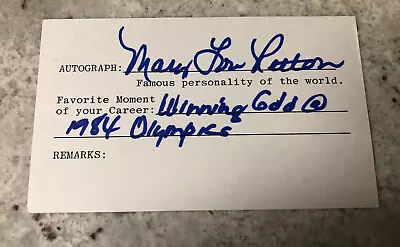 AUTOGRAPH: Mary Lou Retton
Famous personality of the world.
Favorite Moment
of your Career: Winning Gold @
1984 Olympics
REMARKS: